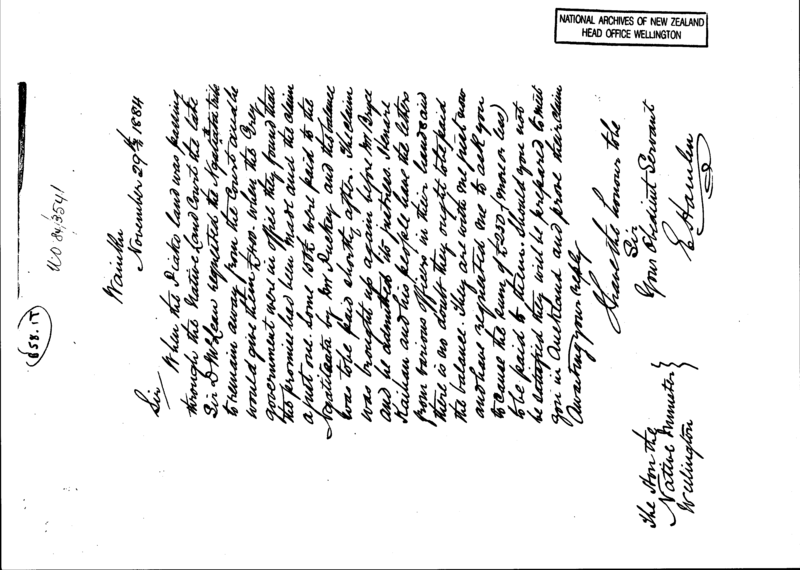 NATIONAL ARCHIVES OF NEW ZEALAND
HEAD OFFICE WELLINGTON
658.IT
NO 84/3541
Waiuku
November 29th 1884
Sir
When the Piako land was passing
through the Native Land Court the late
Sir D McLean requested the Ngatitata tribe
to remain away from the Court and he
would give them £500. when the Grey
government were in office they found that
this promise had been made and the claim
a just one. Some 10th were paid to the
Ngatitata by Mr Puckey and the balance
was to be paid shortly after. The claim
was brought up again before Mr Bryce
and he admitted its justness. Henare
Kaihau and his people have the letters
from various officers in their land and
there is no doubt they ought to be paid
the balance. They are with one just now
and have requested me to ask you
to cause the sum of £250 (more or less)
to be paid to them. Should you not
be satisfied they will be prepared to meet
you in Auckland and prove their claim
Awaiting your reply
I have the honour to be
Sir
Your Obedient Servant
E Hamlin
The Hon the
Native Minister
Wellington